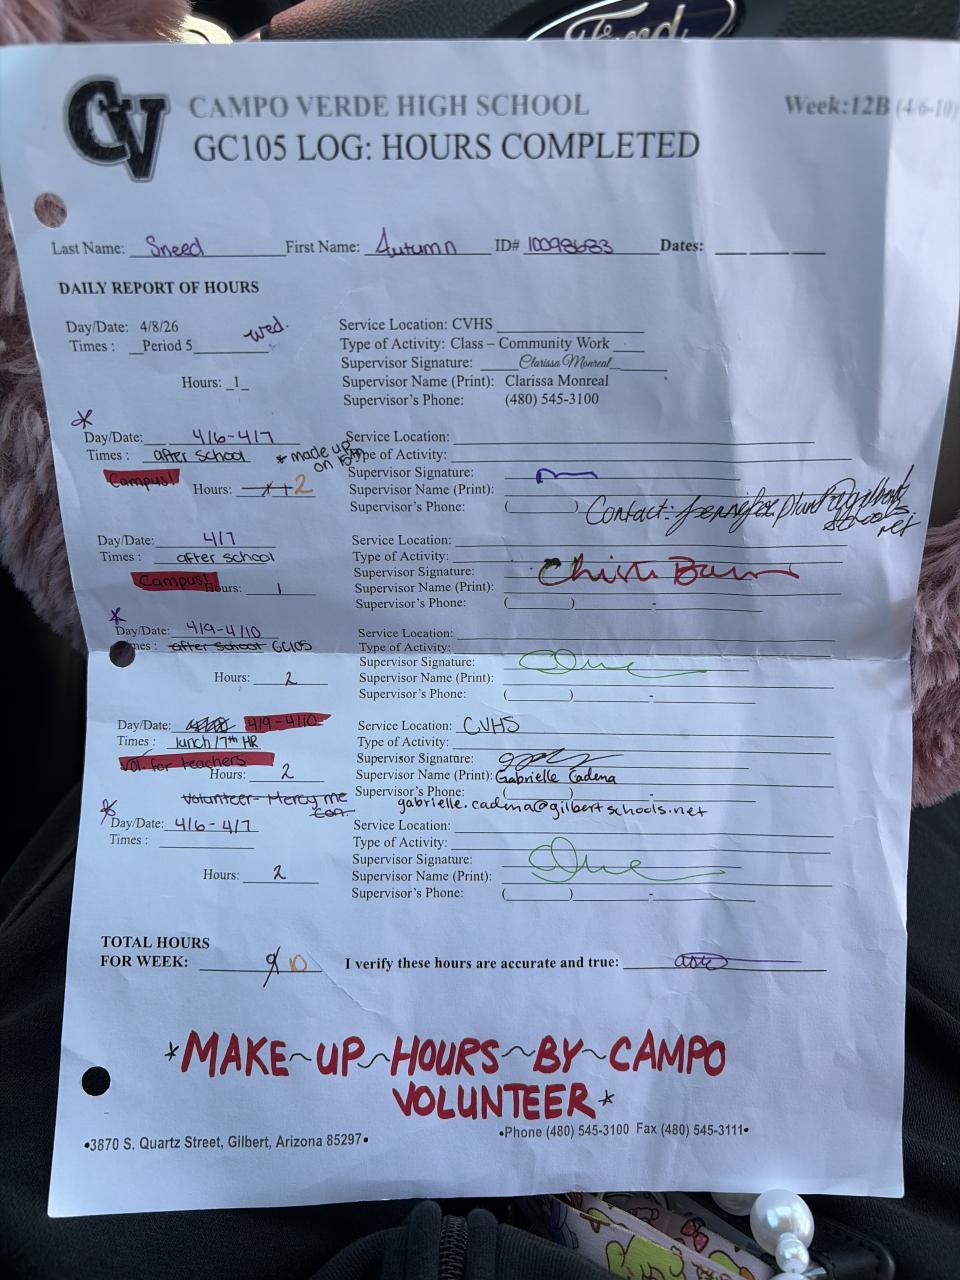 Ford
CV CAMPO VERDE HIGH SCHOOL Week:12B (4/6-10)
GC105 LOG: HOURS COMPLETED
Last Name: Sneed First Name: Autumn ID# 10098683 Dates:
DAILY REPORT OF HOURS
Day/Date: 4/8/26 wed. Service Location: CVHS
Times : Period 5 Type of Activity: Class – Community Work
Supervisor Signature: Clarissa Monreal
Hours: 1 Supervisor Name (Print): Clarissa Monreal
Supervisor's Phone: (480) 545-3100
* Day/Date: 4/6-4/7 Service Location:
Times : after school * made up on Type of Activity:
Campus! Supervisor Signature:
Hours: 2 Supervisor Name (Print):
Supervisor's Phone: ( ) Contact:
Day/Date: 4/7 Service Location:
Times : after school Type of Activity:
Campus! Supervisor Signature:
Hours: 1 Supervisor Name (Print):
Supervisor's Phone: ( ) -
* Day/Date: 4/9-4/10 Service Location:
Times : after school GC105 Type of Activity:
Supervisor Signature:
Hours: 2 Supervisor Name (Print):
Supervisor's Phone: ( ) -
Day/Date: 4/9-4/10 Service Location: CVHS
Times : lunch/7th HR Type of Activity:
Vol. for teachers Supervisor Signature:
Hours: 2 Supervisor Name (Print): Gabrielle Cadena
Volunteer- Mercy me Supervisor's Phone:
gabrielle.cadena@gilbertschools.net
* Day/Date: 4/6-4/7 Service Location:
Times : Type of Activity:
Supervisor Signature:
Hours: 2 Supervisor Name (Print):
Supervisor's Phone: ( ) -
TOTAL HOURS
FOR WEEK: 9 10 I verify these hours are accurate and true:
*MAKE~UP~HOURS~BY~CAMPO
VOLUNTEER*
•3870 S. Quartz Street, Gilbert, Arizona 85297• •Phone (480) 545-3100 Fax (480) 545-3111•